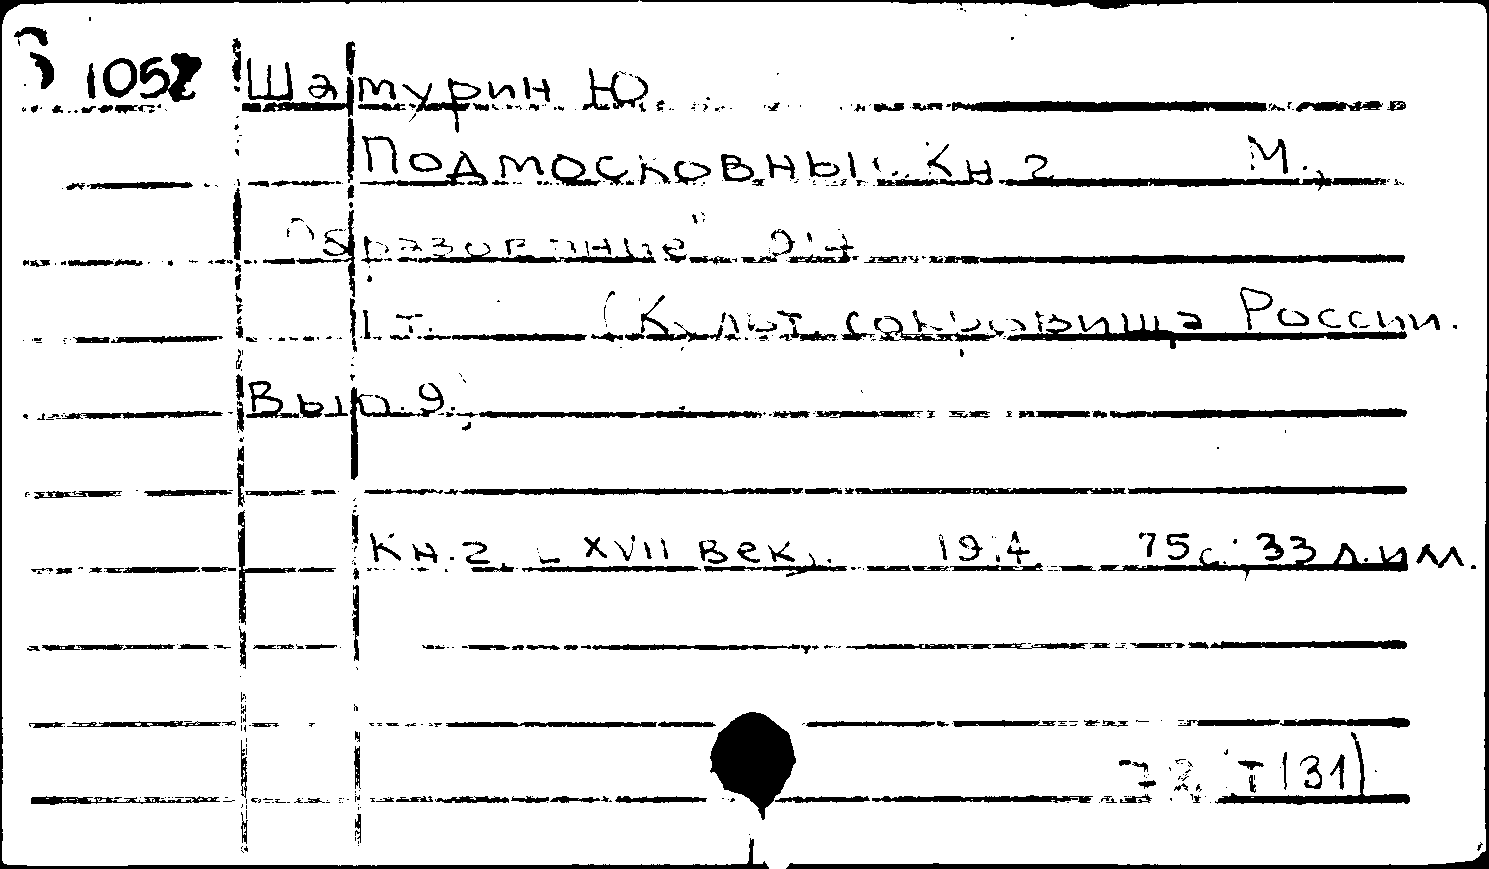 1052 Шамурин Ю.
Подмосковныя. Кн 2 М.,
"Образование"
1 т. (Культ. сокровища России.
Вып. 9.,
Кн. 2. XVII век,. 75 с., 33 л. илл.
(31)